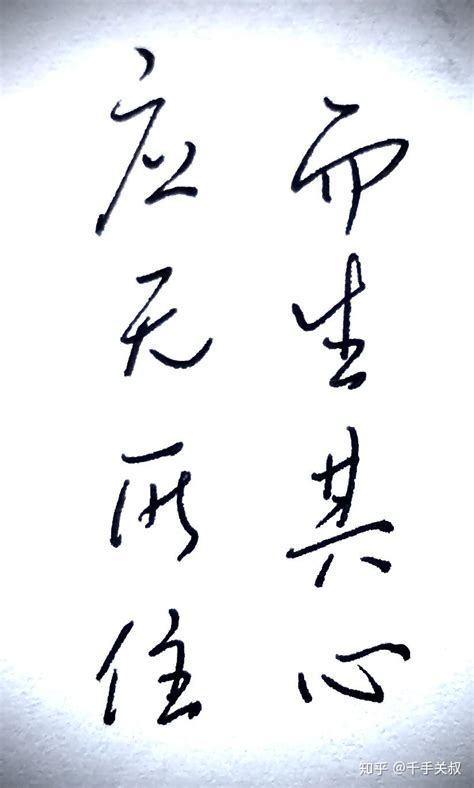 应无所住
而生其心
知乎 @千手关叔